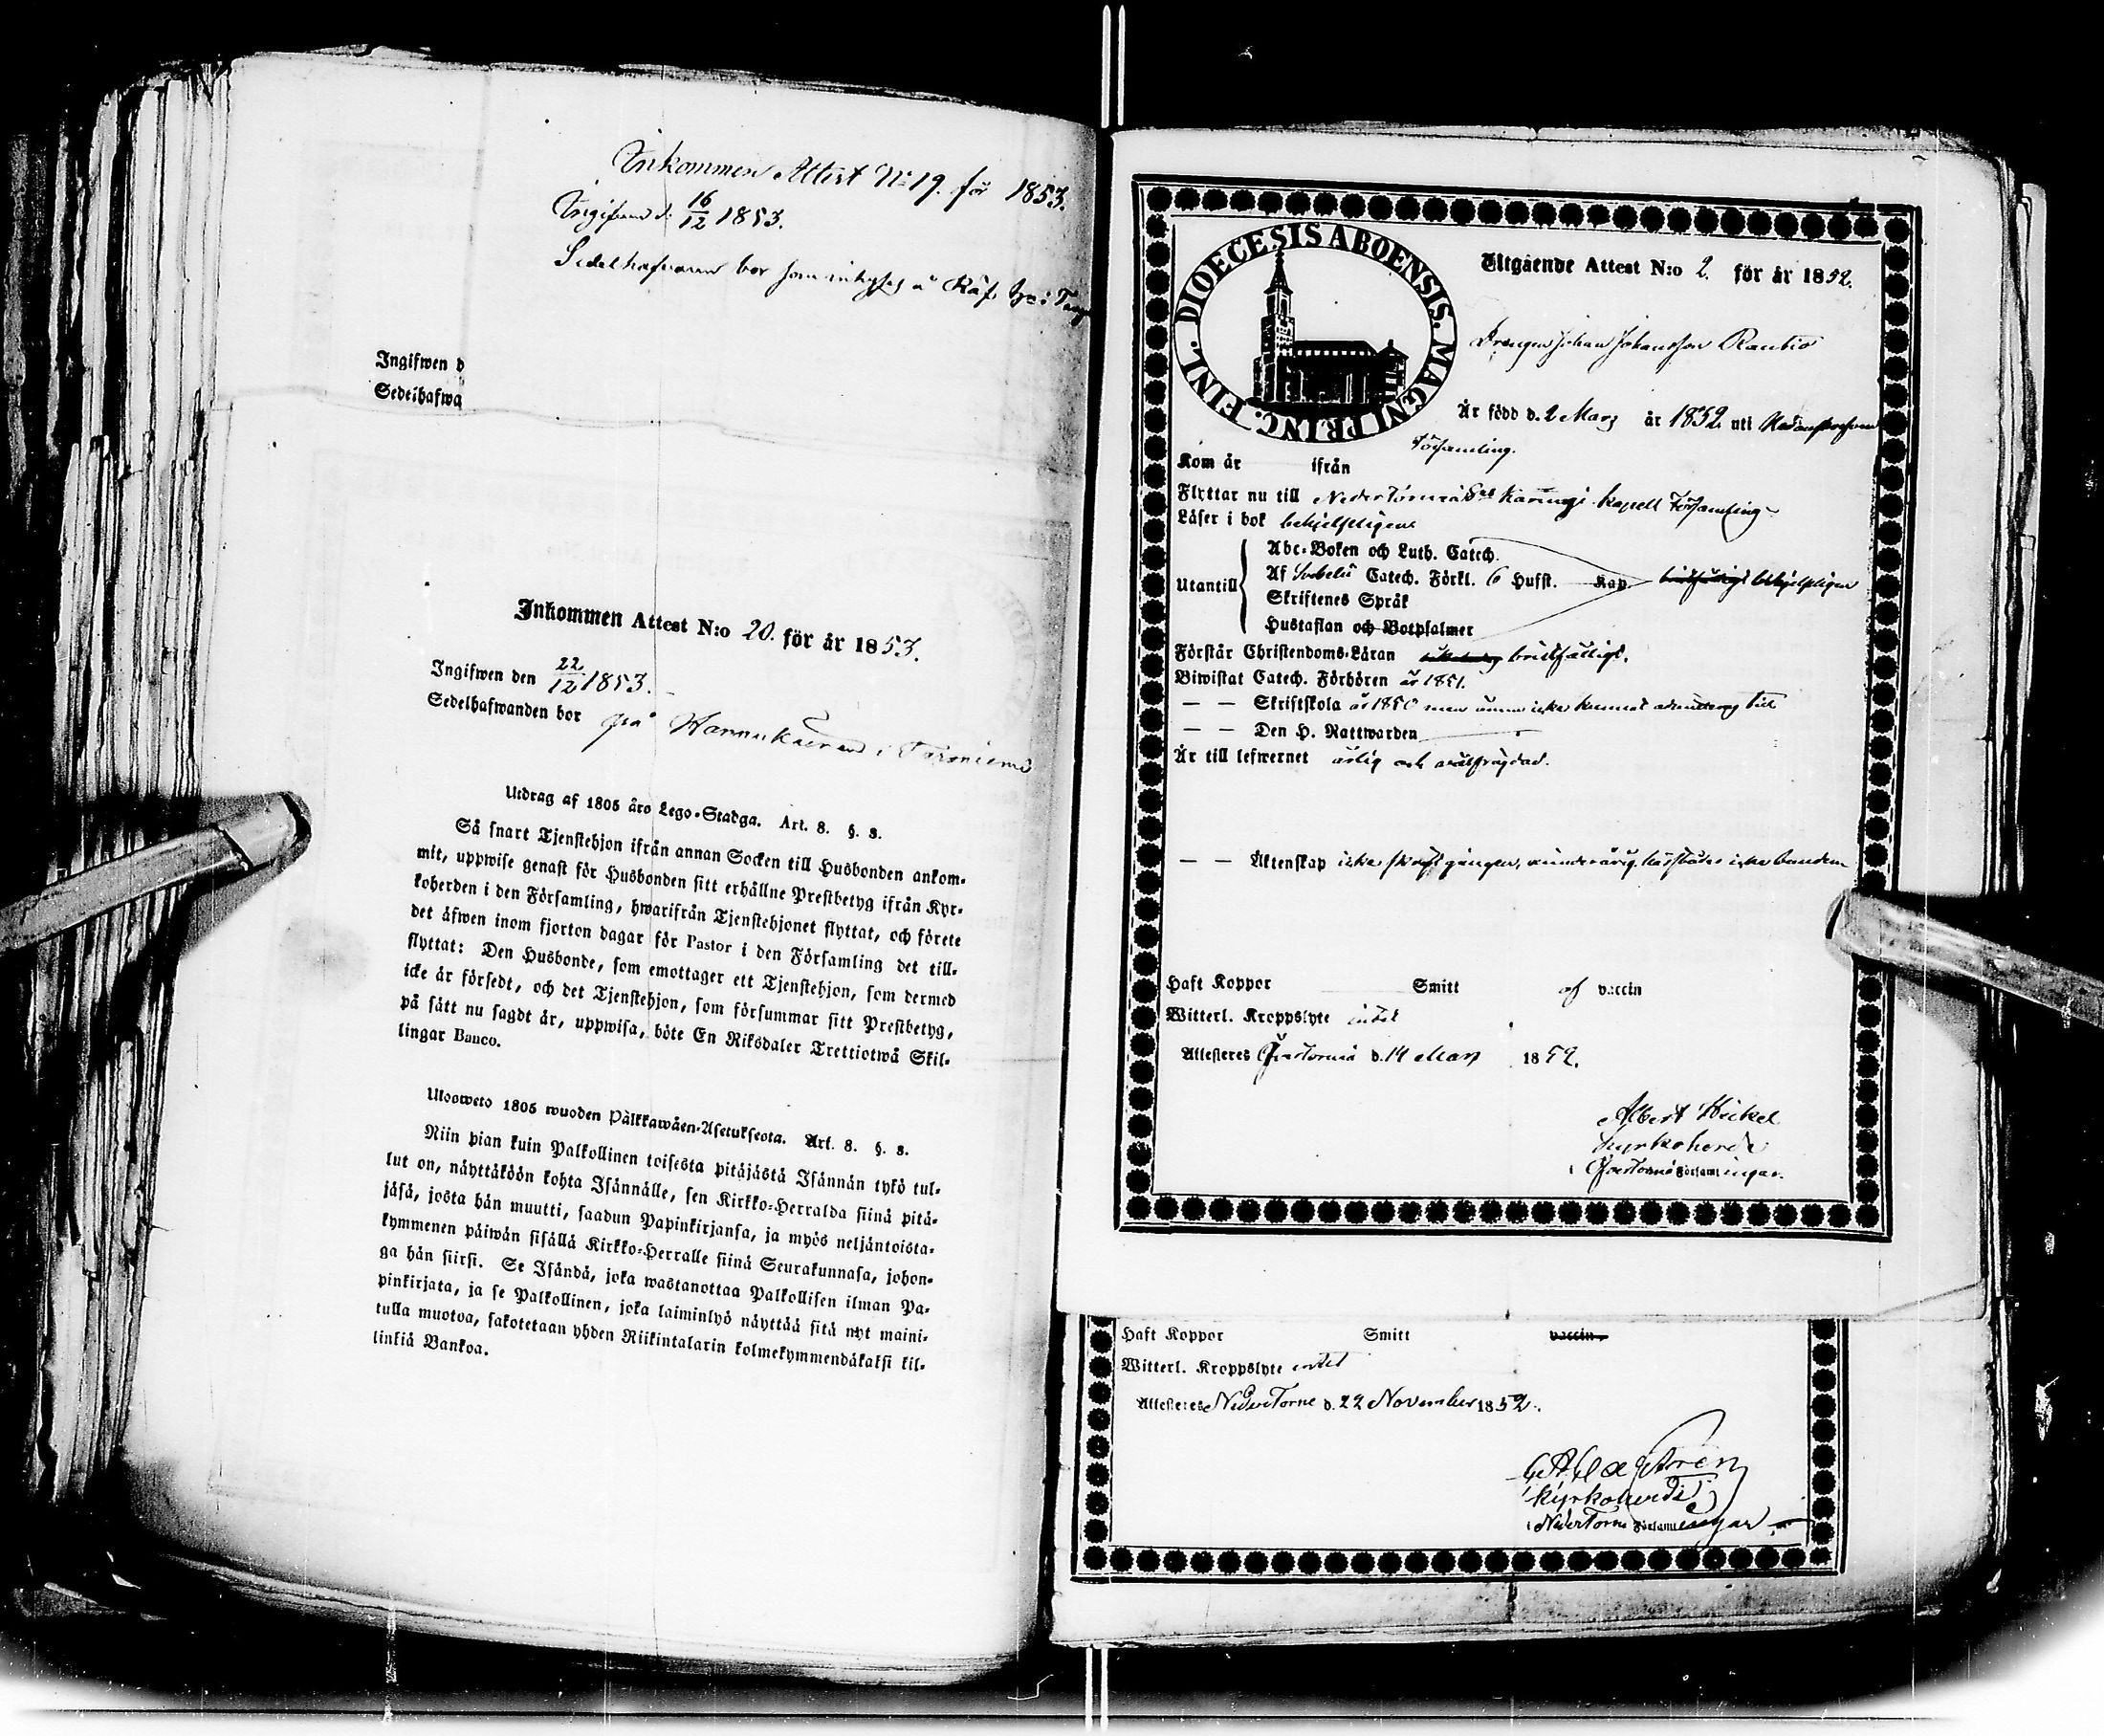 Inkommen Attest No 19. för 1853.
Ingifven d. 16/12 1853.
Sedelhafvaren bor som inhyses å
Ingifwen d
Sedelhafwa
Inkommen Attest N:o 20. för år 1853.
Ingifwen den 22/12 1853.
Sedelhafwanden bor på
Utdrag af 1805 års Lego-Stadga. Art. 8. §. 8.
Så snart Tjenstehjon ifrån annan Socken till Husbonden ankom-
mit, uppwise genast för Husbonden sitt erhållne Prestbetyg ifrån Kyr-
koherden i den Församling, hwarifrån Tjenstehjonet flyttat, och förete
det äfwen inom fjorton dagar för Pastor i den Församling det till-
flyttat: Den Husbonde, som emottager ett Tjenstehjon, som dermed
icke är försedt, och det Tjenstehjon, som försummar sitt Prestbetyg,
på sätt nu sagdt är, uppwisa, böte En Riksdaler Trettiotwå Skil-
lingar Banco.
Ulosweto 1805 wuoden Palkkawäen-Asetuksesta. Art. 8. §. 8.
Niin pian kuin Palkollinen toisesta pitäjästä Isännän tykö tul-
lut on, näyttäköön kohta Isännälle, sen Kirkko-Herralda siinä pitä-
jäsä, josta hän muutti, saadun Papinkirjansa, ja myös neljäntoista-
kymmenen päiwän sisällä Kirkko-Herralle siinä Seurakunnasa, johon-
ga hän siirsi. Se Isändä, joka wastanottaa Palkollisen ilman Pa-
pinkirjata, ja se Palkollinen, joka laiminlyö näyttää sitä nyt maini-
tulla muotoa, sakotetaan yhden Riikintalarin kolmekymmendäkaksi kil-
linkiä Bankoa.
DIOECESIS ABOENSIS. MAGNI PRINC. FINL.
Utgående Attest N:o 2. för år 1852.
Drengen Johan Johansson Rautio
Är född d. 2 Mars år 1832 uti
Församling.
Kom år ifrån
Flyttar nu till Neder Torneå Karungi kapell Församling
Läser i bok behjelpligen
Abc-Boken och Luth. Catech.
Utantill Af Svebelii Catech. Förkl. 6 Hufst. Kap. behjelpligen
Skriftenes Språk
Hustaflan och Botpsalmer
Förstår Christendoms-Läran bristfälligt.
Biwistat Catech. Förhören år 1851.
— — Skriftskola år 1850 men ännu icke kunnat till
— — Den H. Nattwarden
Är till lefwernet ärlig och välfrägdad.
— — Äktenskap icke skriftgången, minderårig, härstädes icke bunden
Haft Koppor Smitt af vaccin
Witterl. Kroppslyte intet
Attesteres Öfvertorneå d. 14 Mars 1852.
Albert Heikel
Kyrkoherde
i Öfvertorneå Församlingar.
Haft Koppor Smitt vaccin.
Witterl. Kroppslyte intet
Attesteres NederTorne d. 22 November 1852.
Kyrkoherde
i NederTorne Församlingar